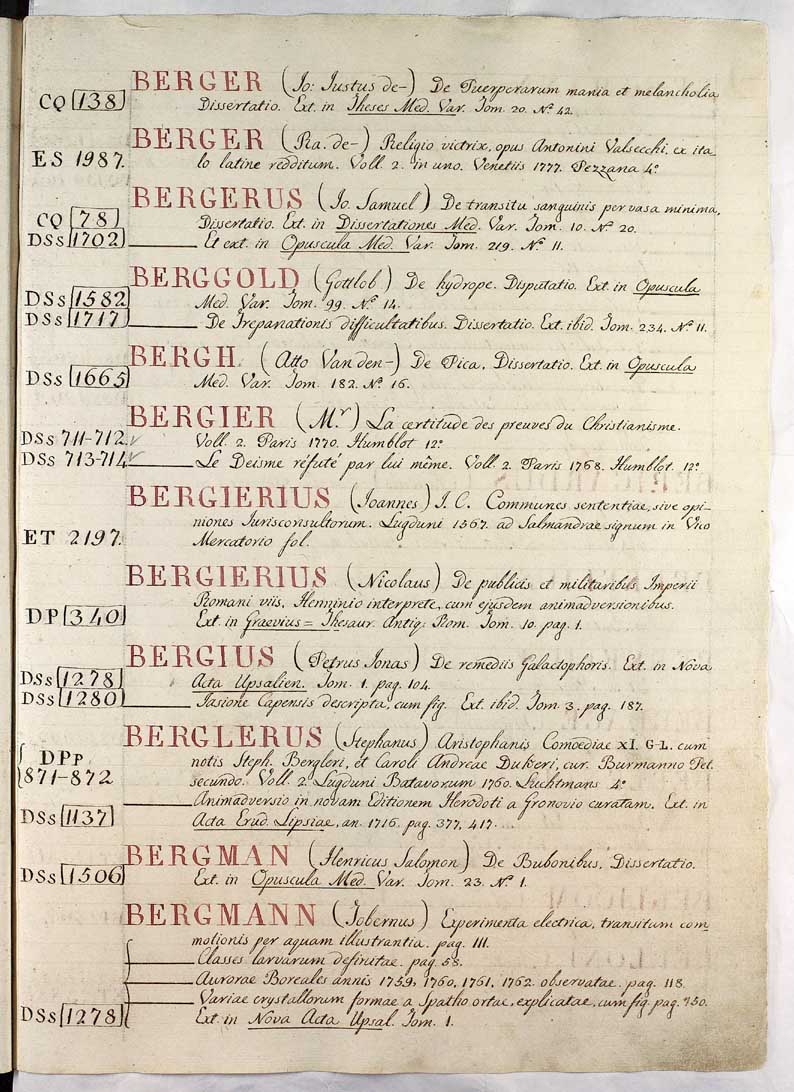 BERGER (Jo: Justus de-) De Puerperarum mania et melancholia
CQ 138 Dissertatio. Ext. in Theses Med. Var. Tom. 20. N.º 42.
BERGER (Ra. de-) Religio victrix, opus Antonini Valsecchi, ex ita_
ES 1987. lo latine redditum. Voll. 2. in uno. Venetiis 1777. Pezzana 4.º
BERGERUS (Jo. Samuel) De transitu sanguinis per vasa minima,
CQ 78 Dissertatio. Ext. in Dissertationes Med. Var. Tom. 10. N.º 20.
DSs 1702 ——— Et ext. in Opuscula Med. Var. Tom. 219. N.º 11.
BERGGOLD (Gottlob) De hydrope. Disputatio. Ext. in Opuscula
DSs 1582 Med. Var. Tom. 99. N.º 14.
DSs 1717 ——— De Trepanationis difficultatibus. Dissertatio. Ext. ibid. Tom. 234. N.º 11.
BERGH. (Atto Van den-) De Pica, Dissertatio. Ext. in Opuscula
DSs 1665 Med. Var. Tom. 182. N.º 16.
BERGIER (M.r) La certitude des preuves du Christianisme.
DSs 711-712 Voll. 2. Paris 1770. Humblot 12.º
DSs 713-714 ——— Le Deisme réfuté par lui même. Voll. 2. Paris 1768. Humblot. 12.º
BERGIERIUS (Joannes) I. C. Communes sententiae, sive opi_
niones Iurisconsultorum. Lugduni 1567. ad Salmandrae signum in Vico
ET 2197. Mercatorio fol.
BERGIERIUS (Nicolaus) De publicis et militaribus Imperii
Romani viis, Henninio interprete, cum ejusdem animadversionibus.
DP 340 Ext. in Graevius = Thesaur. Antiq: Rom. Tom. 10. pag. 1.
BERGIUS (Petrus Jonas) De remediis Galactophoris. Ext. in Nova
DSs 1278 Acta Upsalien. Tom. 1. pag. 104.
DSs 1280 ——— Jasione Capensis descripta, cum fig. Ext. ibid. Tom. 3. pag. 187.
BERGLERUS (Stephanus) Aristophanis Comoediae XI. G-L. cum
DPp 871-872 notis Steph. Bergleri, et Caroli Andreae Dukeri, cur. Burmanno Pet.
secundo. Voll. 2. Lugduni Batavorum 1760. Luchtmans 4.º
——— Animadversio in novam Editionem Herodoti a Gronovio curatam. Ext. in
DSs 1137 Acta Erud. Lipsiae, an. 1716. pag. 377, 417.
BERGMAN (Henricus Salomon) De Bubonibus, Dissertatio.
DSs 1506 Ext. in Opuscula Med. Var. Tom. 23. N.º 1.
BERGMANN (Tobernus) Experimenta electrica, transitum com_
motionis per aquam illustrantia. pag. 111.
——— Classes larvarum definitae. pag. 58.
——— Aurorae Boreales annis 1759, 1760, 1761, 1762. observatae. pag. 118.
——— Variae crystallorum formae a Spatho ortae, explicatae, cum fig. pag. 150.
DSs 1278 Ext. in Nova Acta Upsal. Tom. 1.